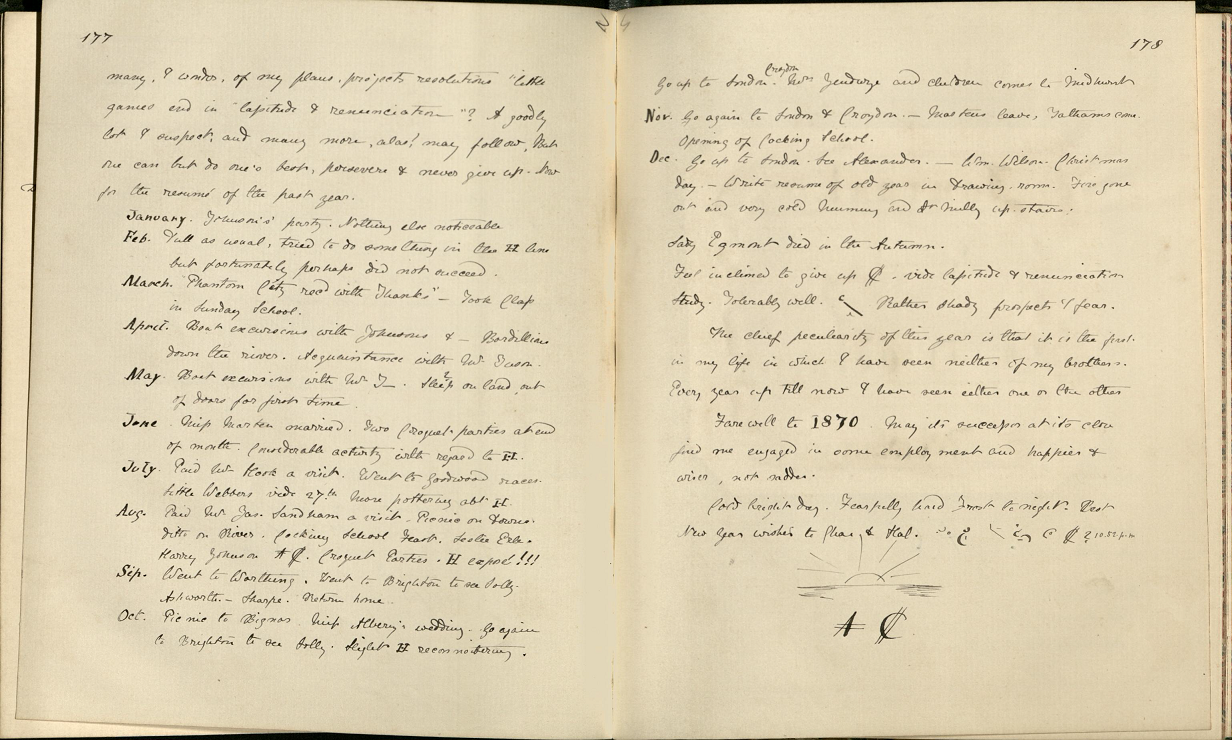 177
many, I wonder, of my plans, projects resolutions "little
games end in "lapsitude & renunciation"? A goodly
lot I suspect, and many more, alas! may follow, But
one can but do one's best, persevere & never give up. Now
for the resumé of the past year.
January. Johnsons' party. Nothing else noticeable
Feb. Dull as usual, tried to do something in the H line
but fortunately perhaps did not succeed.
March. Phantom City recd with Thanks" – Took Class
in Sunday School.
April. Boat excursions with Johnsons & – Bordillions
down the river. Acquaintance with Mr Tyson.
May. Boat excursions with Mr. T–. Sleep? on land, out
of doors for first time.
June. Miss Marten married. Two Croquet parties at end
of month. Considerable activity with regard to H.
July. Paid Mr Hook a visit. Went to Goodwood races.
Little Webbers vide 27th. More pottering abt H.
Aug. Paid Mr Jas. Sandham a visit. Picnic on Downs.
ditto on River. Cocking School Feast. Leslie Erle.
Harry Johnson A C. Croquet Parties. H exposé!!!
Sep. Went to Worthing. Went to Brighton to see Polly
Ashworth. – Sharpe. Return home.
Oct. Picnic to Bignor. Miss Albery's wedding. Go again
to Brighton to see Polly. Slight H reconnoitering.
178
Go up to London. Croydon. Mrs and children comes to Midhurst
Nov. Go again to London & Croydon. – Martens leave, Yalthams come.
Opening of Cocking School.
Dec. Go up to London. See Alexander. – Wm. Wilson. Christmas
day. – Write resume of old year in Drawing-room. Fire gone
out and very cold Mummy and up-stairs.
Lady Egmont died in the Autumn.
Feel inclined to give up C. vide lapsitude & renunciation
Study. Tolerably well. Rather shady prospects I fear.
The chief peculiarity of this year is that it is the first
in my life in which I have seen neither of my brothers.
Every year up till now I have seen either one or the other
Farewell to 1870. May its successor at its close
find me engaged in some employment and happier &
wiser, not sadder.
Cold bright day. Fearfully hard Frost to night. Best
New Year wishes to Chas, & Hal. 10.52 p.m
A C